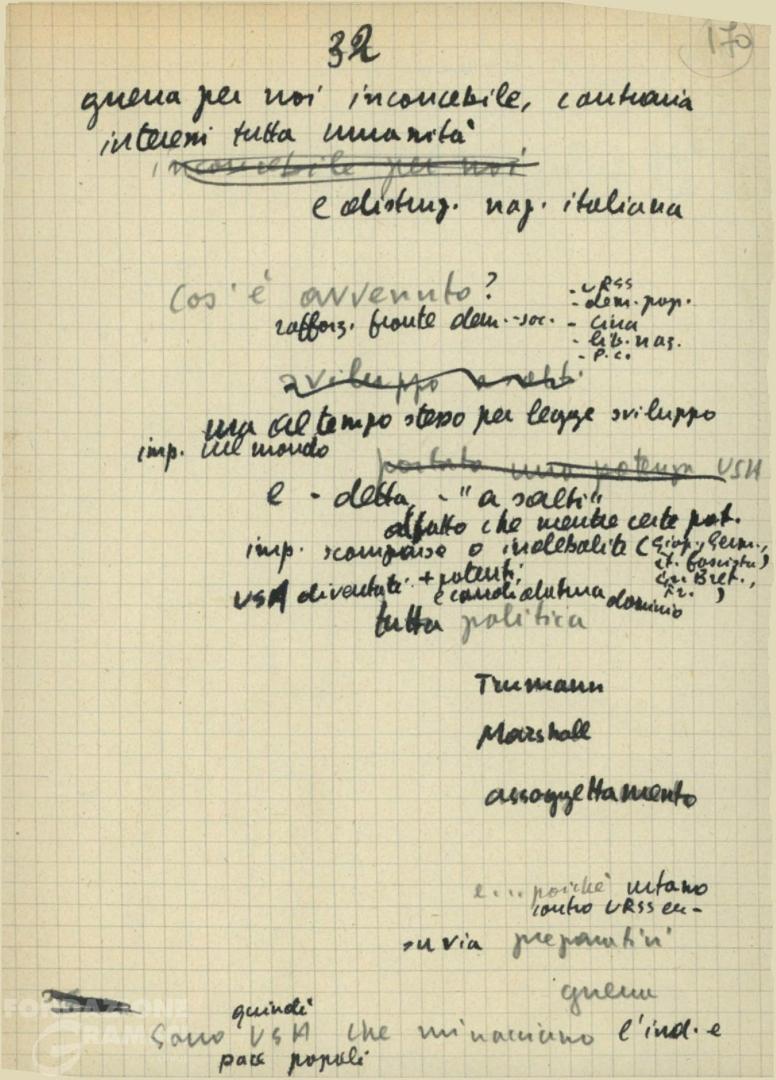 170
32
guerra per noi inconcebile, contraria
interessi tutta umanità
inconcebile per noi
e distrug. naz. italiana
Cos'è avvenuto?
- URSS
- dem. pop.
rafforz. fronte dem.-soc. - Cina
- lib. naz.
- P.C.
sviluppo a salti.
ma al tempo stesso per legge sviluppo
imp. nel mondo
portato una potenza USA
e - detta - "a salti"
dal fatto che mentre certe pot.
imp. scomparse o indebolite (Giap., Germ.,
it. fascista)
Gr. Bret.,
Fr. )
USA diventati + potenti,
e candidatura dominio
tutta politica
Trumann
Marshall
assoggettamento
e... poiché urtano
contro URSS ecc-
su via preparativi
guerra
quindi
Sono USA che minacciano l'ind. e
pace popoli
FONDAZIONE
GRAMSCI